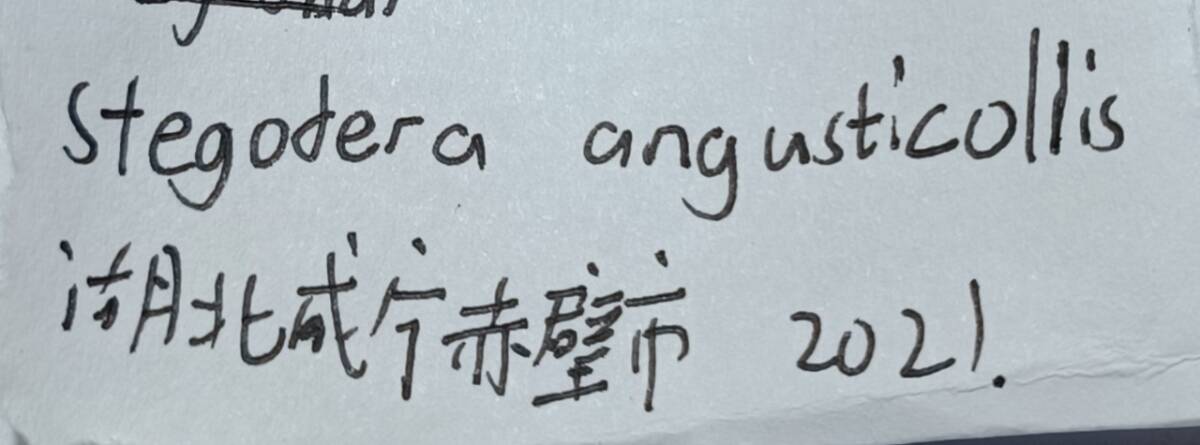 Stegodera angusticollis
湖北咸宁赤壁市 2021.